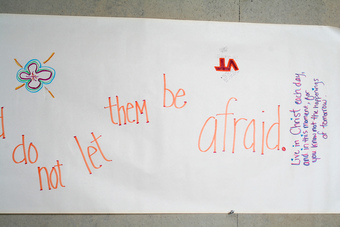 do not let them be afraid.
VT
Live in Christ each day,
and in this moment, for
you know not the happenings
of tomorrow